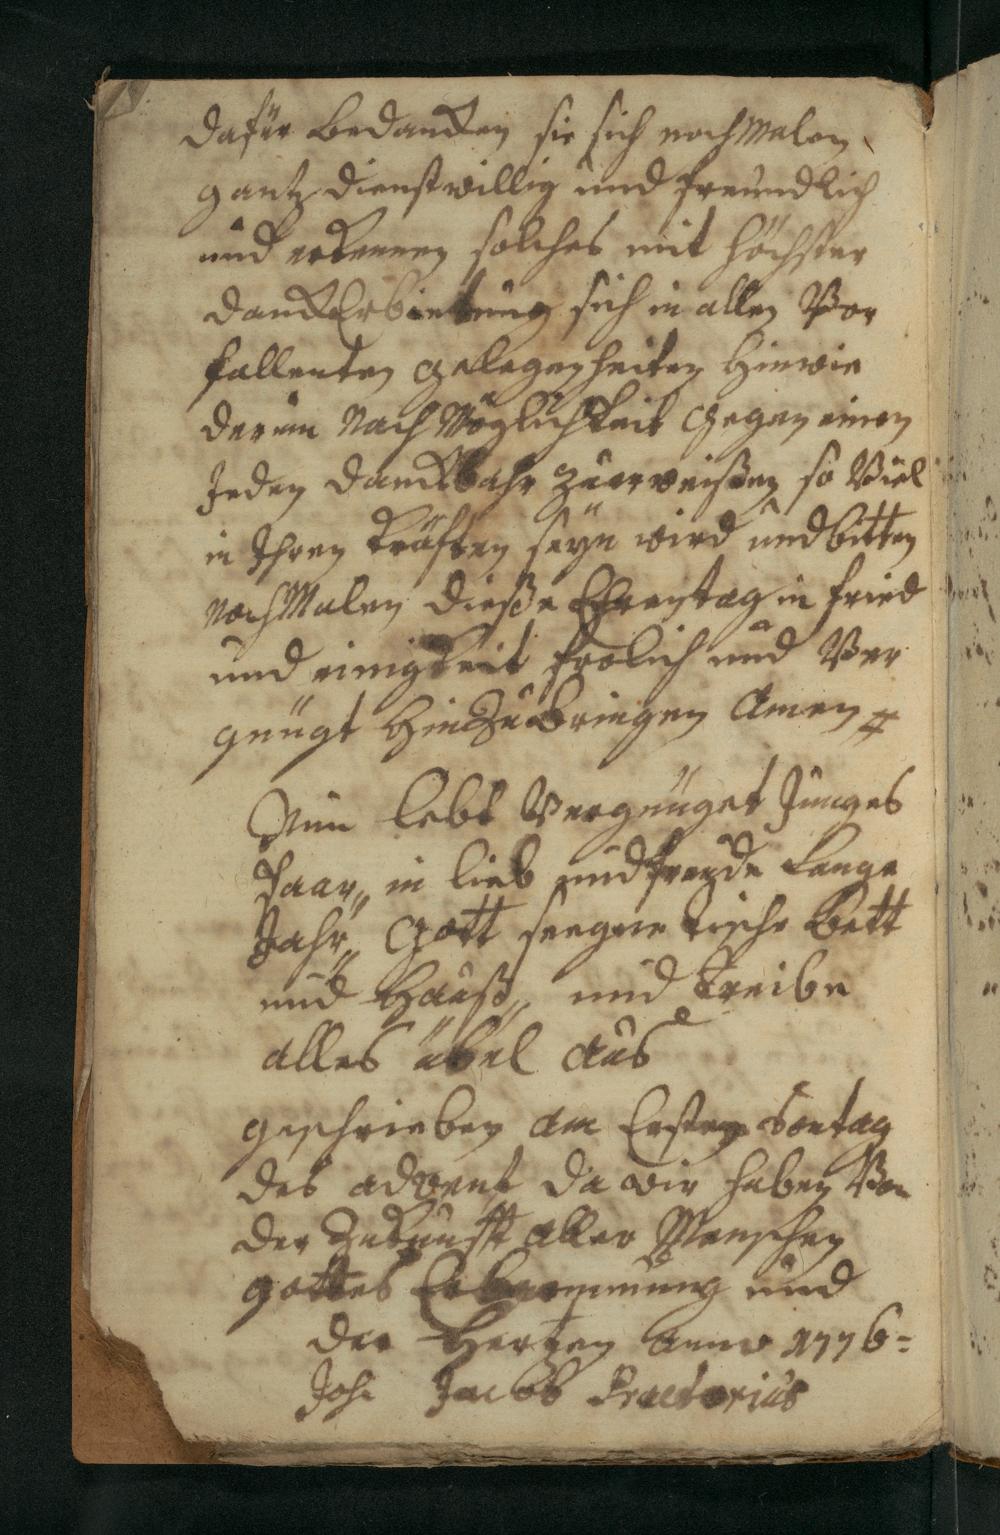 dafür bedancken sie sich nochmalen
gantz dienstwillig und freundlich
und erkennen solches mit höchster
danckErbietung sich in allen Vor
fallenten gelegenheiten hinwie
derum Nach Möglichkeit gegen einen
Jeden danckbahr zu erweißen so Viel
in Ihren kräften seÿn wird und bitten
nochMalen dieße Ehrentag in fried
und einigkeit frölich und Ver
gnügt hinZubringen Amen
Nun lebt Vergnüget Junges
Paar„ in lieb und freude lange
Jahr„ Gott seegne tische bett
und Hauß„ und treibe
alles übel aus
geschrieben am Ersten Sontag
des advent da wir haben Von
der Zukunfft aller Menschen
gottes Erbarmung und
der Hertzen anno 1776=
Joh: Jacob Praetorius